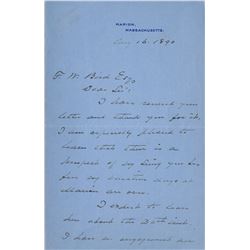 MARION,
MASSACHUSETTS.
Aug 16. 1890
F. W. Bird Esq
Dear Sir:
I have received your
letter and thank you for it.
I am especially pleased to
learn that there is a
prospect of my seeing you
for my vacation days at
Marion are over.
I expect to leave
here about the 20th inst.
I have an engagement